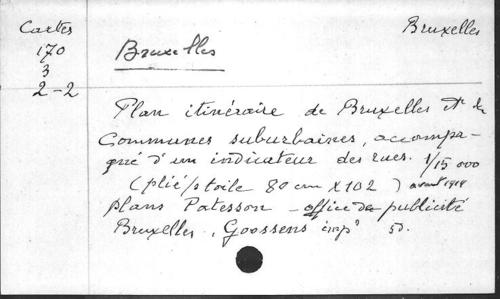 Cartes
170
3
2-2
Bruxelles
Bruxelles
Plan itinéraire de Bruxelles et de
Communes suburbaines, accompa-
gné d'un indicateur des rues. 1/15 000
(plié/stoile 80 cm X 102) avant 1914
Plans Patesson - office de publicité
Bruxelles, Goossens imp°